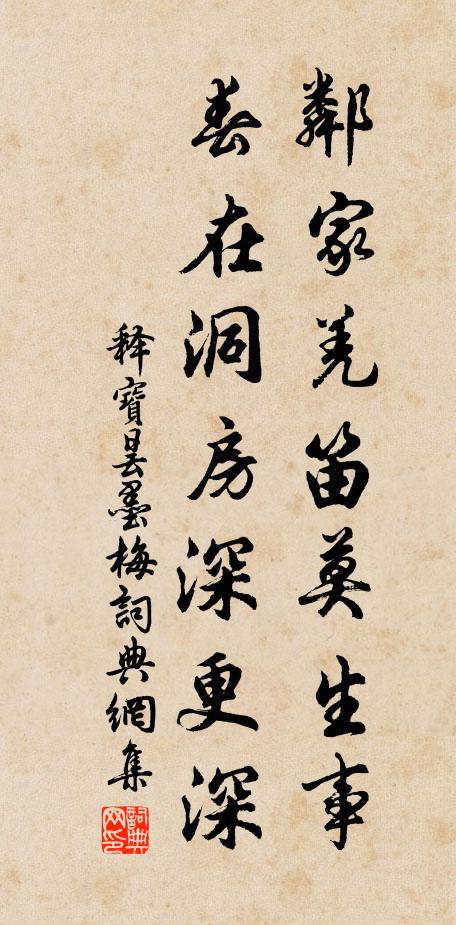 鄰家羌笛莫生事
春在洞房深更深
释寶曇墨梅詞典網集
詞典网印